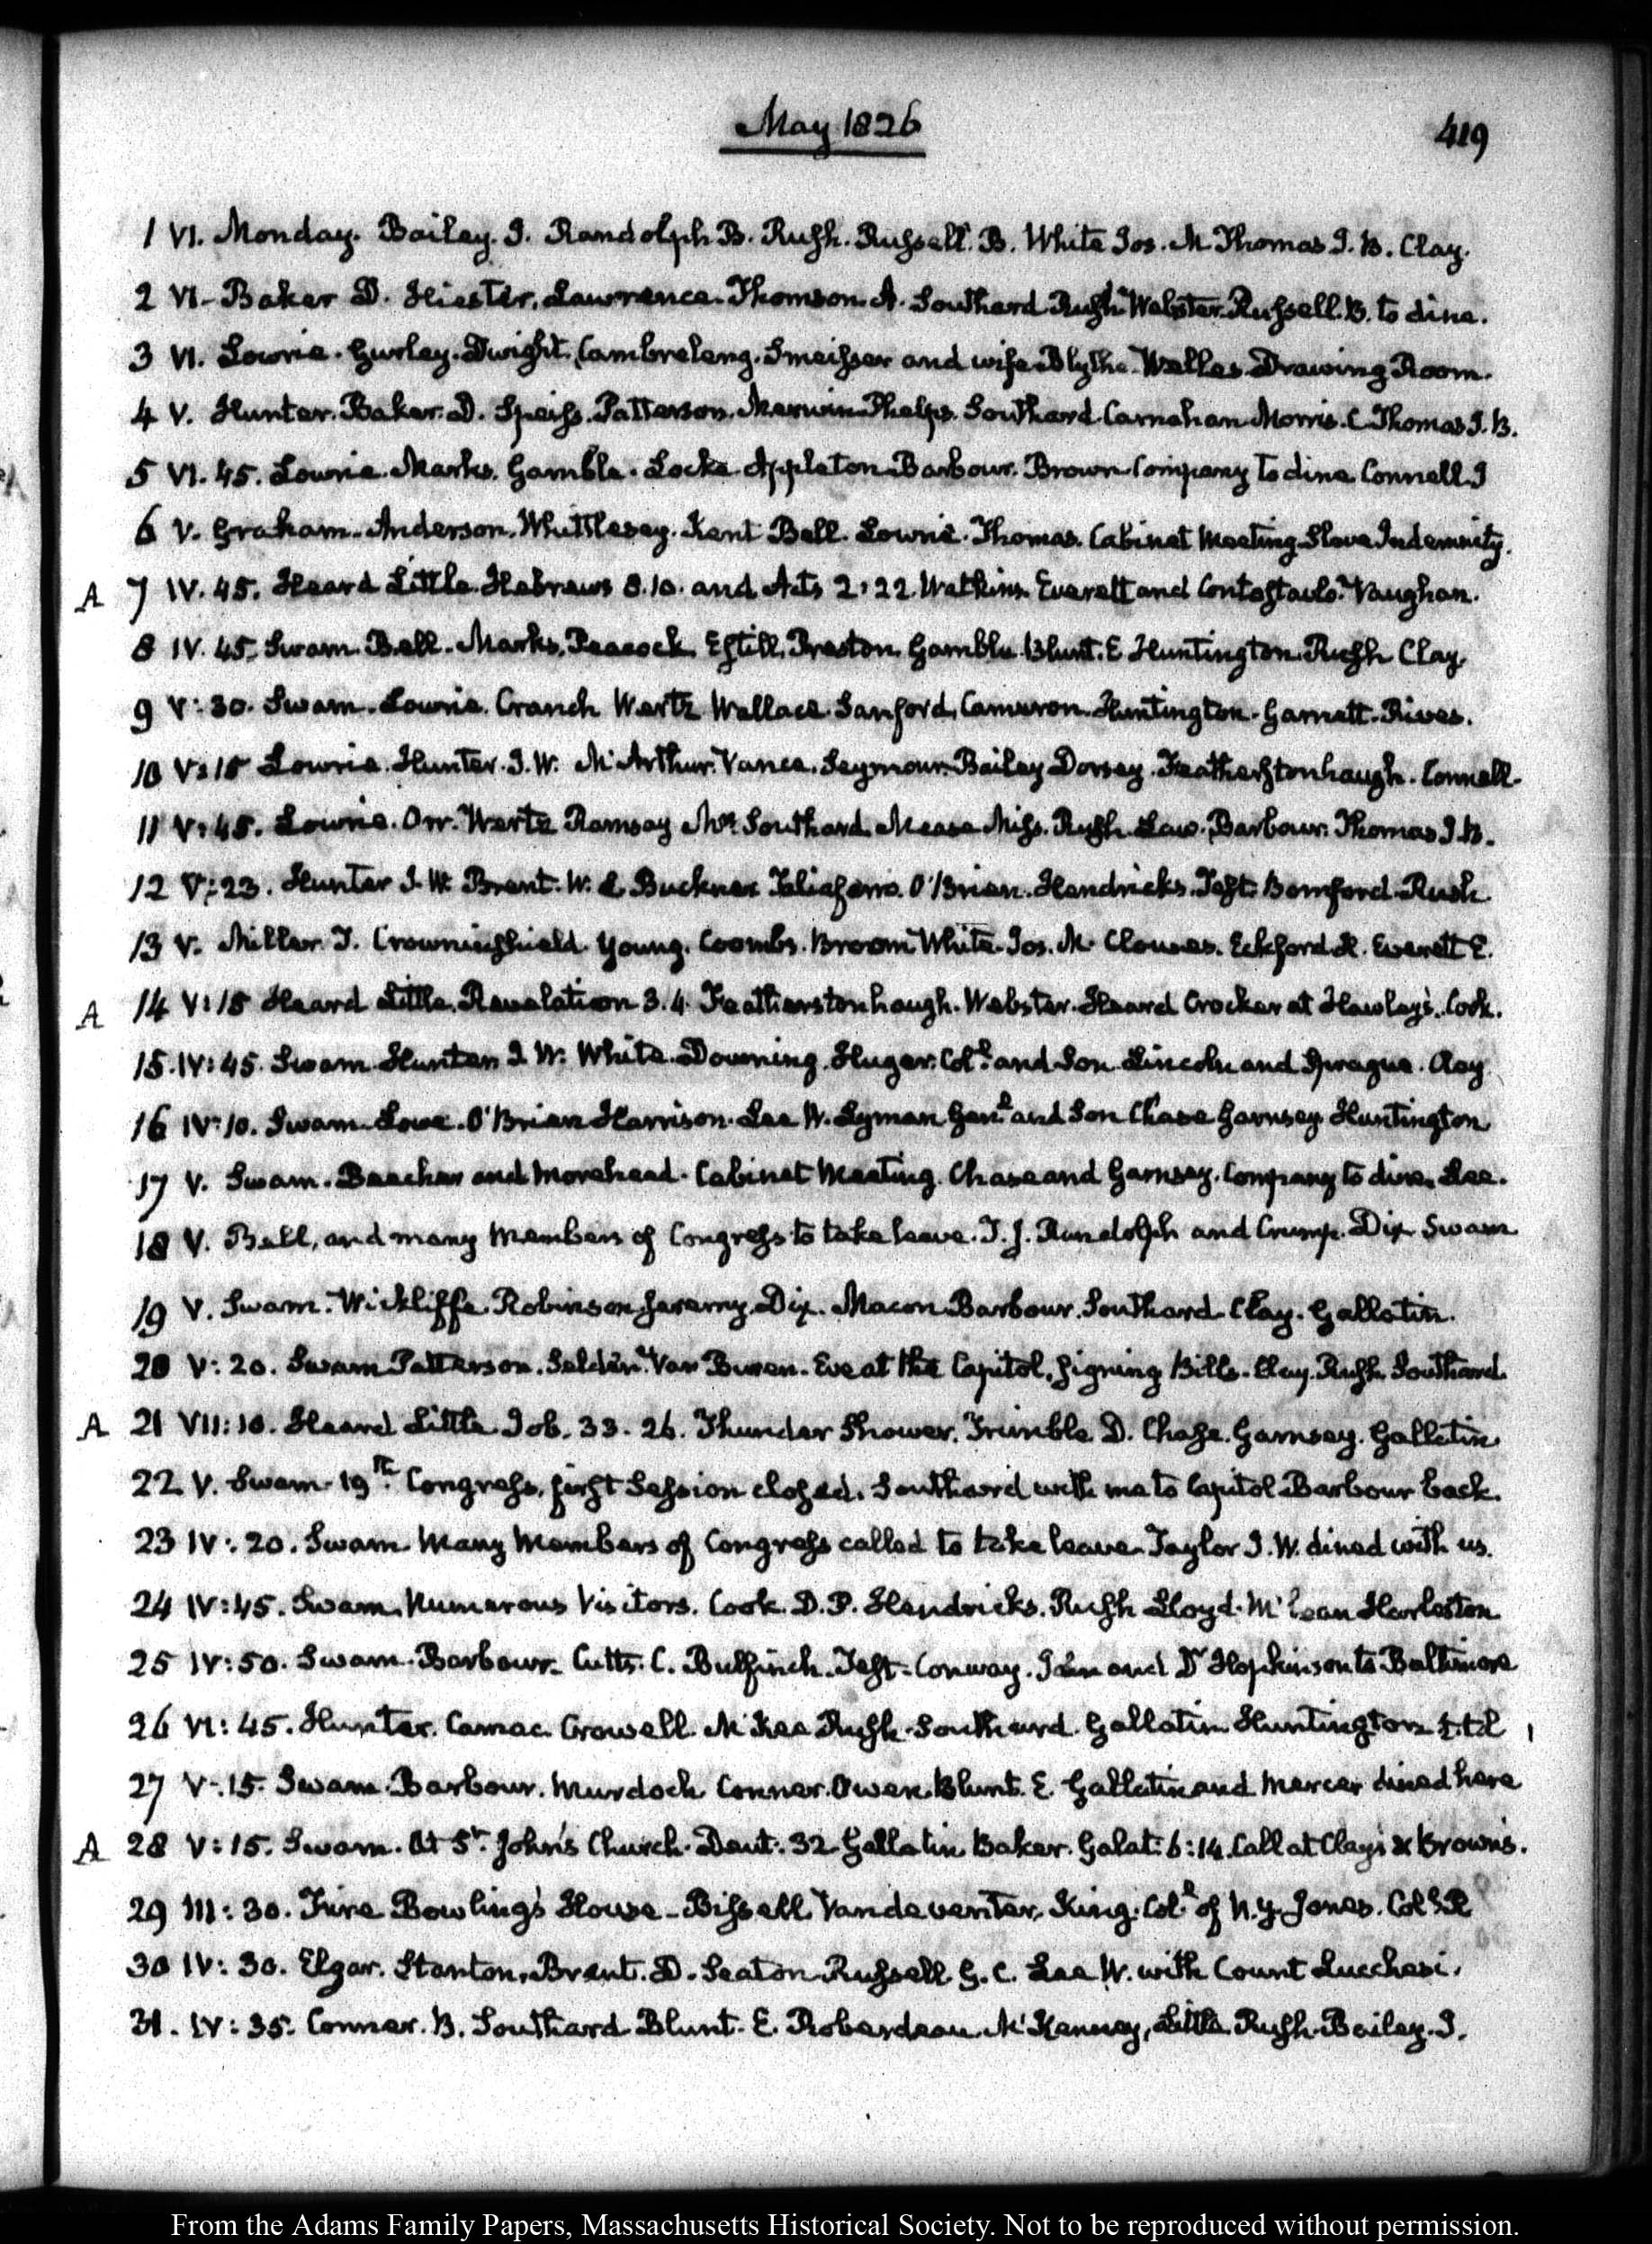 May 1826
419
1 VI. Monday. Bailey. J. Randolph B. Rush. Russell. B. White Jos. M. Thomas J. B. Clay.
2 VI- Baker D. Hiester. Lawrence. Thomson. A. Southard Rush Webster. Russell. B. to dine.
3 VI. Lowrie. Gurley. Dwight. Cambreleng. Smeisser and wife Blythe. Welles. Drawing Room.
4 V. Hunter. Baker. D. Speiss. Patterson. Merwin Phelps. Southard. Carnahan Morris. C. Thomas J. B.
5 VI. 45. Lowrie. Marks. Gamble. Locke Appleton Barbour. Brown Company to dine Connell. J
6 V. Graham. Anderson. Whittlesey. Kent Bell. Lowrie. Thomas. Cabinet Meeting. Slave Indemnity.
A 7 IV. 45. Heard Little. Hebrews 8. 10. and Acts 2. 22. Watkins. Everett and Contostavlo. Vaughan.
8 IV. 45. Swam. Bell. Marks. Peacock. Estill. Preston. Gamble. Blunt. E. Huntington. Rush Clay.
9 V: 30. Swam. Lowrie. Cranch Wertz Wallace. Sanford, Cameron. Huntington. Garnett. Rives.
10 V: 15 Lowrie. Hunter. J. W. McArthur. Vance. Seymour. Bailey Dorsey. Featherstonhaugh. Connell.
11 V: 45. Lowrie. Orr. Wertz Ramsay Mrs. Southard. Mease Miss. Rush. Law. Barbour. Thomas J. B.
12 V: 23. Hunter J. W. Brent. W. L Buckner Taliaferro. O'Brien. Hendricks. Taft. Bomford. Rush.
13 V. Miller. J. Crowninshield. Young. Coombs. Broom White. Jos. M. Clowes. Eckford H. Everett E.
A 14 V: 15 Heard Little. Revelation 3. 4. Featherstonhaugh. Webster. Heard Crocker at Hawley's. Cook.
15. IV: 45. Swam Hunter J. W. White. Downing. Huger. Col. and Son. Lincoln and Sprague. Clay
16 IV: 10. Swam. Lowe. O'Brien Harrison. Lee W. Lyman Genl. and Son Chase Garnsey. Huntington
17 V. Swam. Beecher and Morehead. Cabinet Meeting. Chase and Garnsey. Company to dine. Lee.
18 V. Bell, and many Members of Congress to take leave. T. J. Randolph and Crump. Dix. Swam
19 V. Swam. Wickliffe. Robinson Jeremy. Dix. Macon Barbour. Southard. Clay. Gallatin.
20 V: 20. Swam Patterson. Selden. Van Buren. Eve at the Capitol, signing Bills. Clay. Rush. Southard.
A 21 VII: 10. Heard Little Job. 33. 26. Thunder Shower. Trimble. D. Chase. Garnsey. Gallatin
22 V. Swam. 19th. Congress, first Session closed. Southard with me to Capitol Barbour back.
23 IV: 20. Swam. Many Members of Congress called to take leave. Taylor J. W. dined with us.
24 IV: 45. Swam. Numerous Visitors. Cook. D. P. Hendricks. Rush Lloyd. McLean Harleston
25 IV: 50. Swam. Barbour. Cutts. C. Bulfinch. Taft. Conway. John and Dr. Hopkinson to Baltimore
26 VI: 45. Hunter. Camac. Crowell. McKee Rush. Southard. Gallatin Huntington
27 V: 15. Swam. Barbour. Murdoch Conner. Owen. Blunt. E. Gallatin and Mercer dined here
A 28 V: 15. Swam. At St. John's Church. Deut: 32. Gallatin Baker. Galat: 6: 14. Call at Clay's & Brown's.
29 III: 30. Fire Bowling's House. Bissell Vandeventer. King. Col. of N. Y. Jones. Col. R
30 IV: 30. Elgar. Stanton. Brent. D. Seaton Russell G. C. Lee W. with Count Lucchesi.
31. IV: 35. Conner. B. Southard Blunt. E. Roberdeau McKenney, Little Rush. Bailey. J.
From the Adams Family Papers, Massachusetts Historical Society. Not to be reproduced without permission.